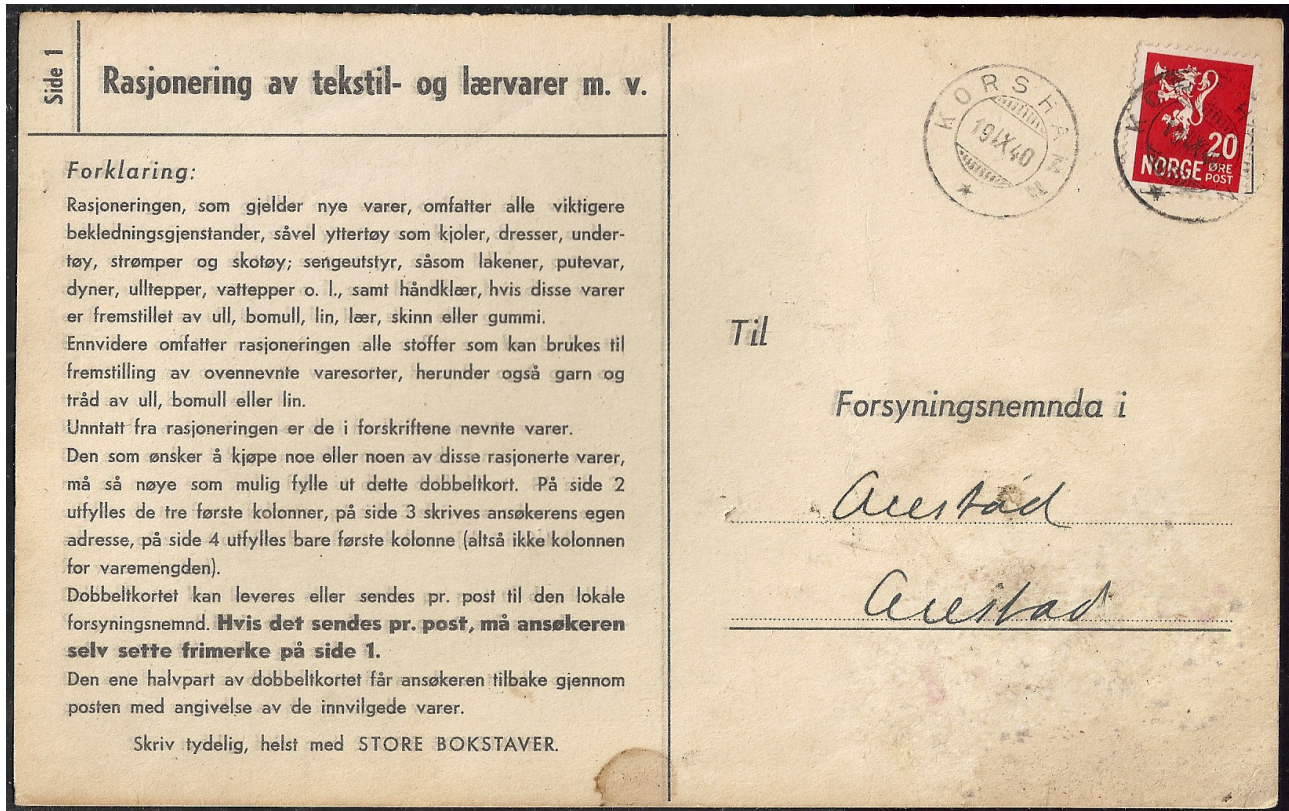 Side 1
Rasjonering av tekstil- og lærvarer m. v.
Forklaring:
Rasjoneringen, som gjelder nye varer, omfatter alle viktigere
bekledningsgjenstander, såvel yttertøy som kjoler, dresser, under-
tøy, strømper og skotøy; sengeutstyr, såsom lakener, putevar,
dyner, ulltepper, vattepper o. l., samt håndklær, hvis disse varer
er fremstillet av ull, bomull, lin, lær, skinn eller gummi.
Ennvidere omfatter rasjoneringen alle stoffer som kan brukes til
fremstilling av ovennevnte varesorter, herunder også garn og
tråd av ull, bomull eller lin.
Unntatt fra rasjoneringen er de i forskriftene nevnte varer.
Den som ønsker å kjøpe noe eller noen av disse rasjonerte varer,
må så nøye som mulig fylle ut dette dobbeltkort. På side 2
utfylles de tre første kolonner, på side 3 skrives ansøkerens egen
adresse, på side 4 utfylles bare første kolonne (altså ikke kolonnen
for varemengden).
Dobbeltkortet kan leveres eller sendes pr. post til den lokale
forsyningsnemnd. Hvis det sendes pr. post, må ansøkeren
selv sette frimerke på side 1.
Den ene halvpart av dobbeltkortet får ansøkeren tilbake gjennom
posten med angivelse av de innvilgede varer.
Skriv tydelig, helst med STORE BOKSTAVER.
KORSHAMN
19 IX 40
20
NORGE ØRE
POST
Til
Forsyningsnemnda i